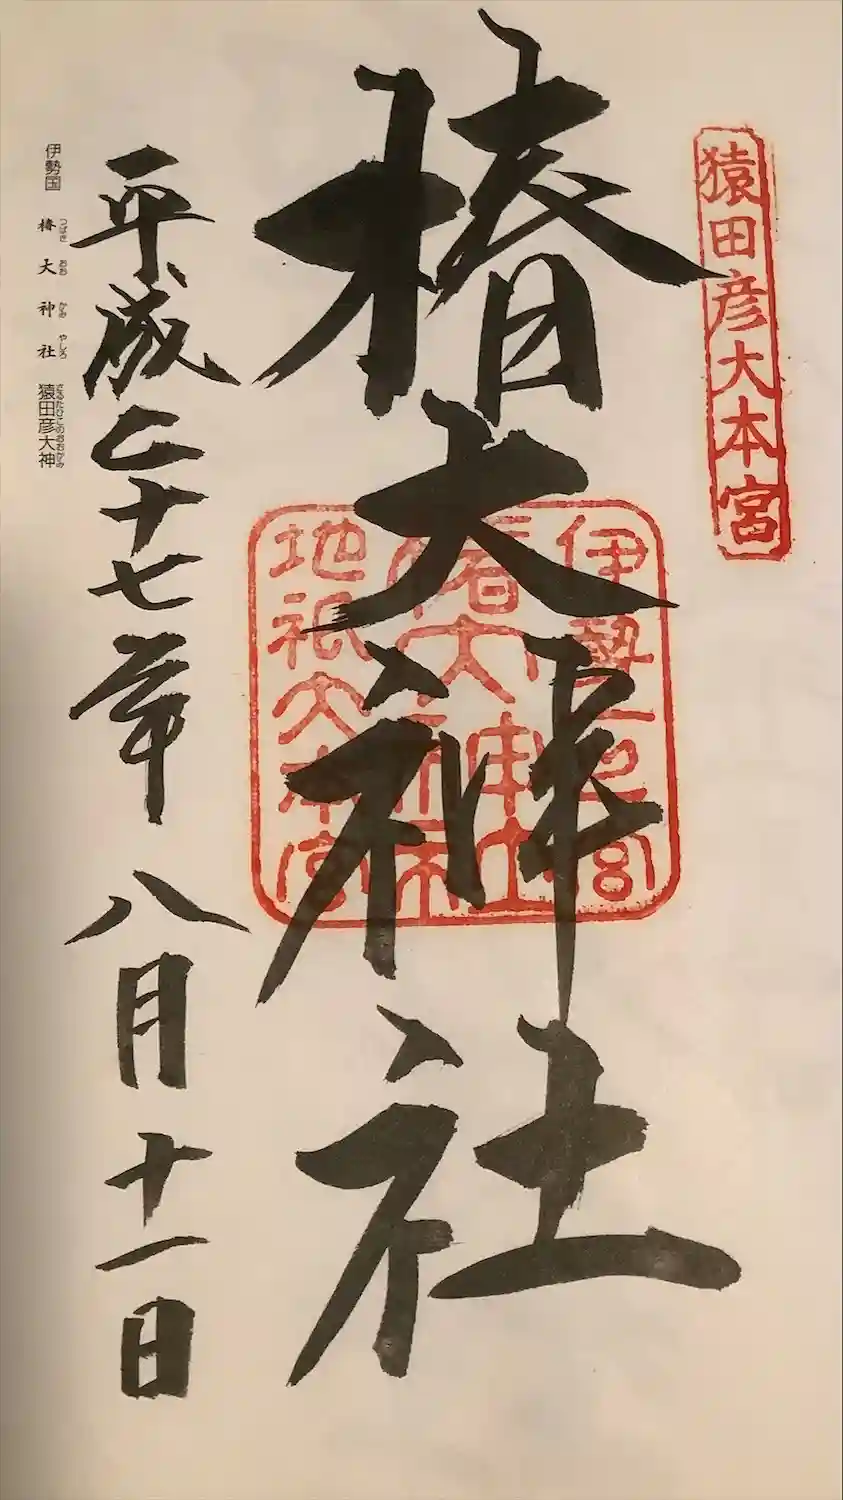 猿田彦大本宮
椿大神社
伊勢一之宮
椿大神社
地祇大本宮
平成二十七年 八月十一日
伊勢国 椿大神社 猿田彦大神
つばき おお かみ やしろ さるたひこのおおかみ